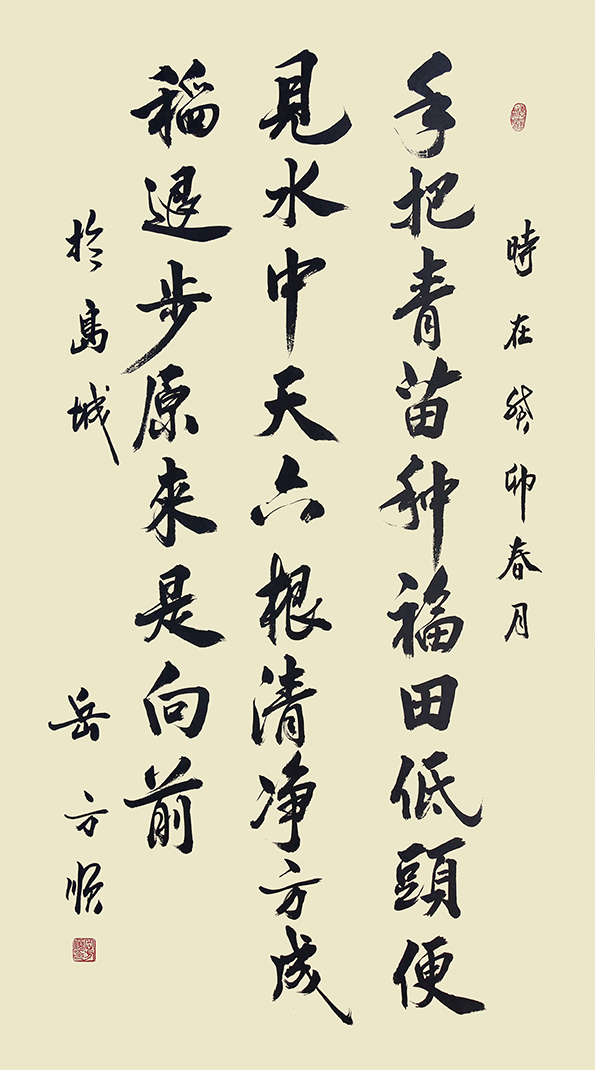 時在癸卯春月
手把青苗种福田低頭便
見水中天六根清净方成
稲退步原來是向前
於島城
岳方順